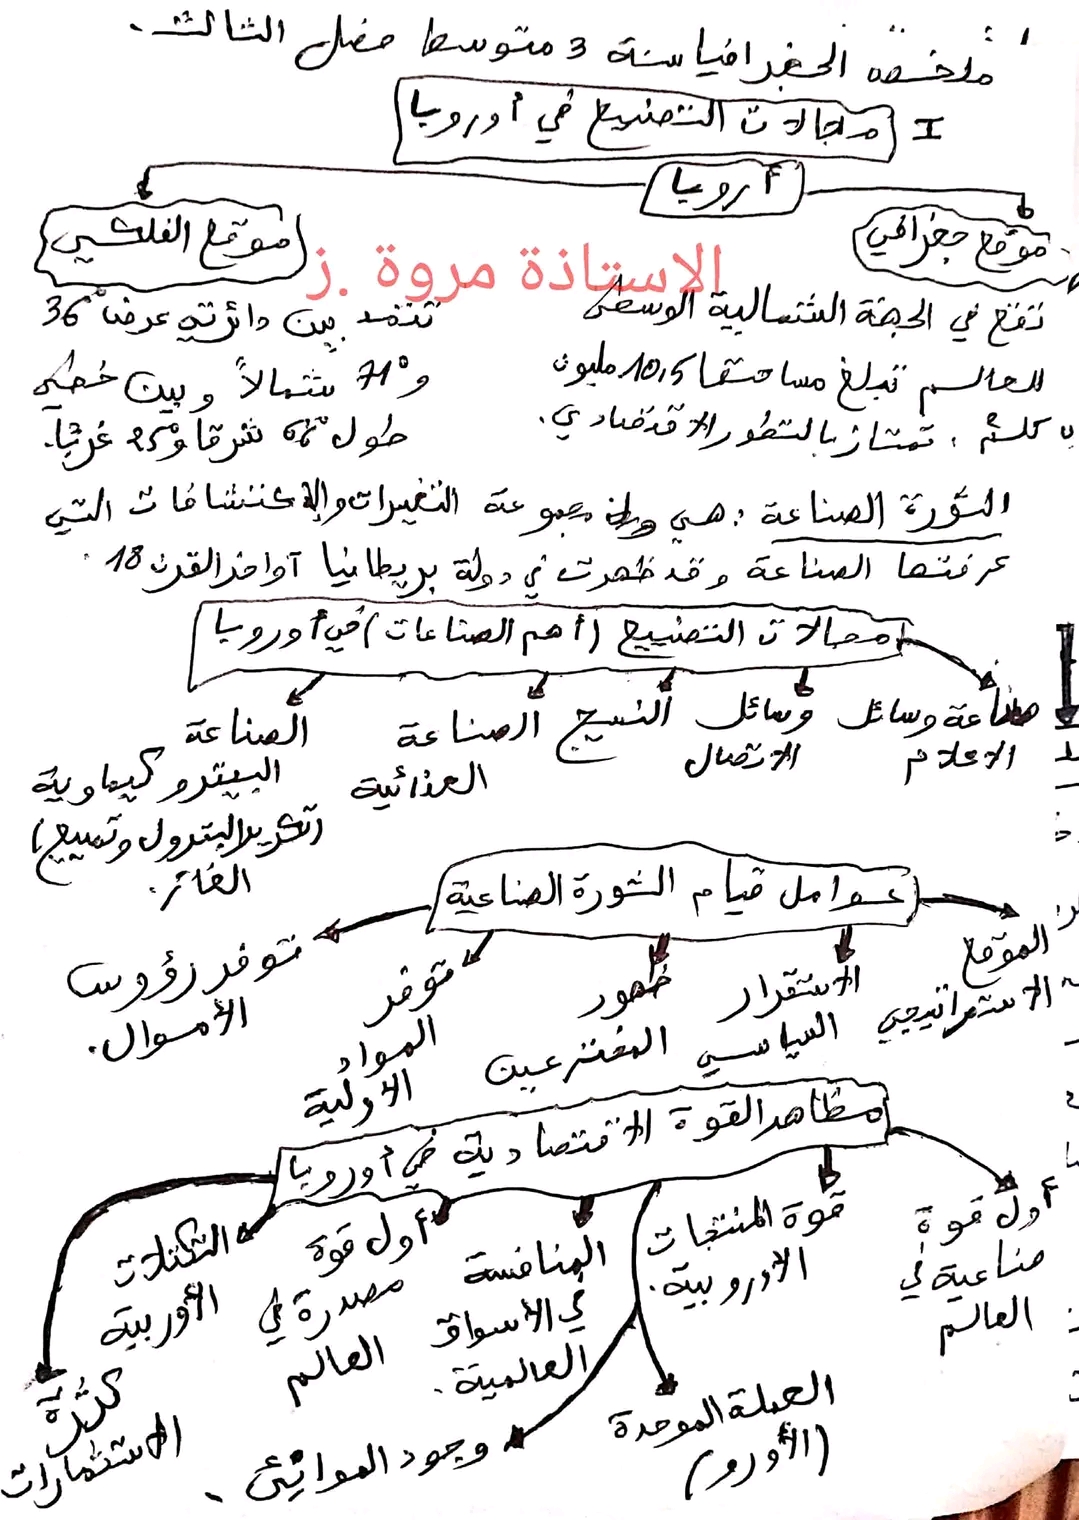 ملخص الجغرافيا سنة 3 متوسط فصل الثالث.
I مجالات التصنيع في أوروبا
أروبا
موقع جغرافي
موقع الفلكي
الاستاذة مروة .ز
تقع في الجهة الشمالية الوسطى
للعالم تبلغ مساحتها 10,5 مليون
كلم²، تمتاز بالتطور الاقتصادي.
تمتد بين دائرتي عرض 36°
و 71° شمالاً وبين خطي
طول 66° شرقا و 25° غربًا.
الثورة الصناعة : هي مجموعة التغيرات والاكتشافات التي
عرفتها الصناعة وقد ظهرت في دولة بريطانيا أواخر القرن 18.
مجالات التصنيع (أهم الصناعات) في أوروبا
صناعة وسائل
الاعلام
وسائل
الاتصال
النسيج
الصناعة
الغذائية
الصناعة
البيتروكيماوية
(تكرير البترول وتمييع)
الغاز.
عوامل قيام الثورة الصناعية
الموقع
الاستراتيجي
الاستقرار
السياسي
ظهور
المخترعين
توفر
المواد
الاولية
توفر رؤوس
الأموال.
مظاهر القوة الاقتصادية في أوروبا
أول قوة
صناعية في
العالم
قوة المنتجات
الاوروبية.
العملة الموحدة
(الأورو)
وجود الموانئ.
المنافسة
في الأسواق
العالمية.
أول قوة
مصدرة في
العالم
التكتلات
الأوربية
كثرة
الاستثمارات